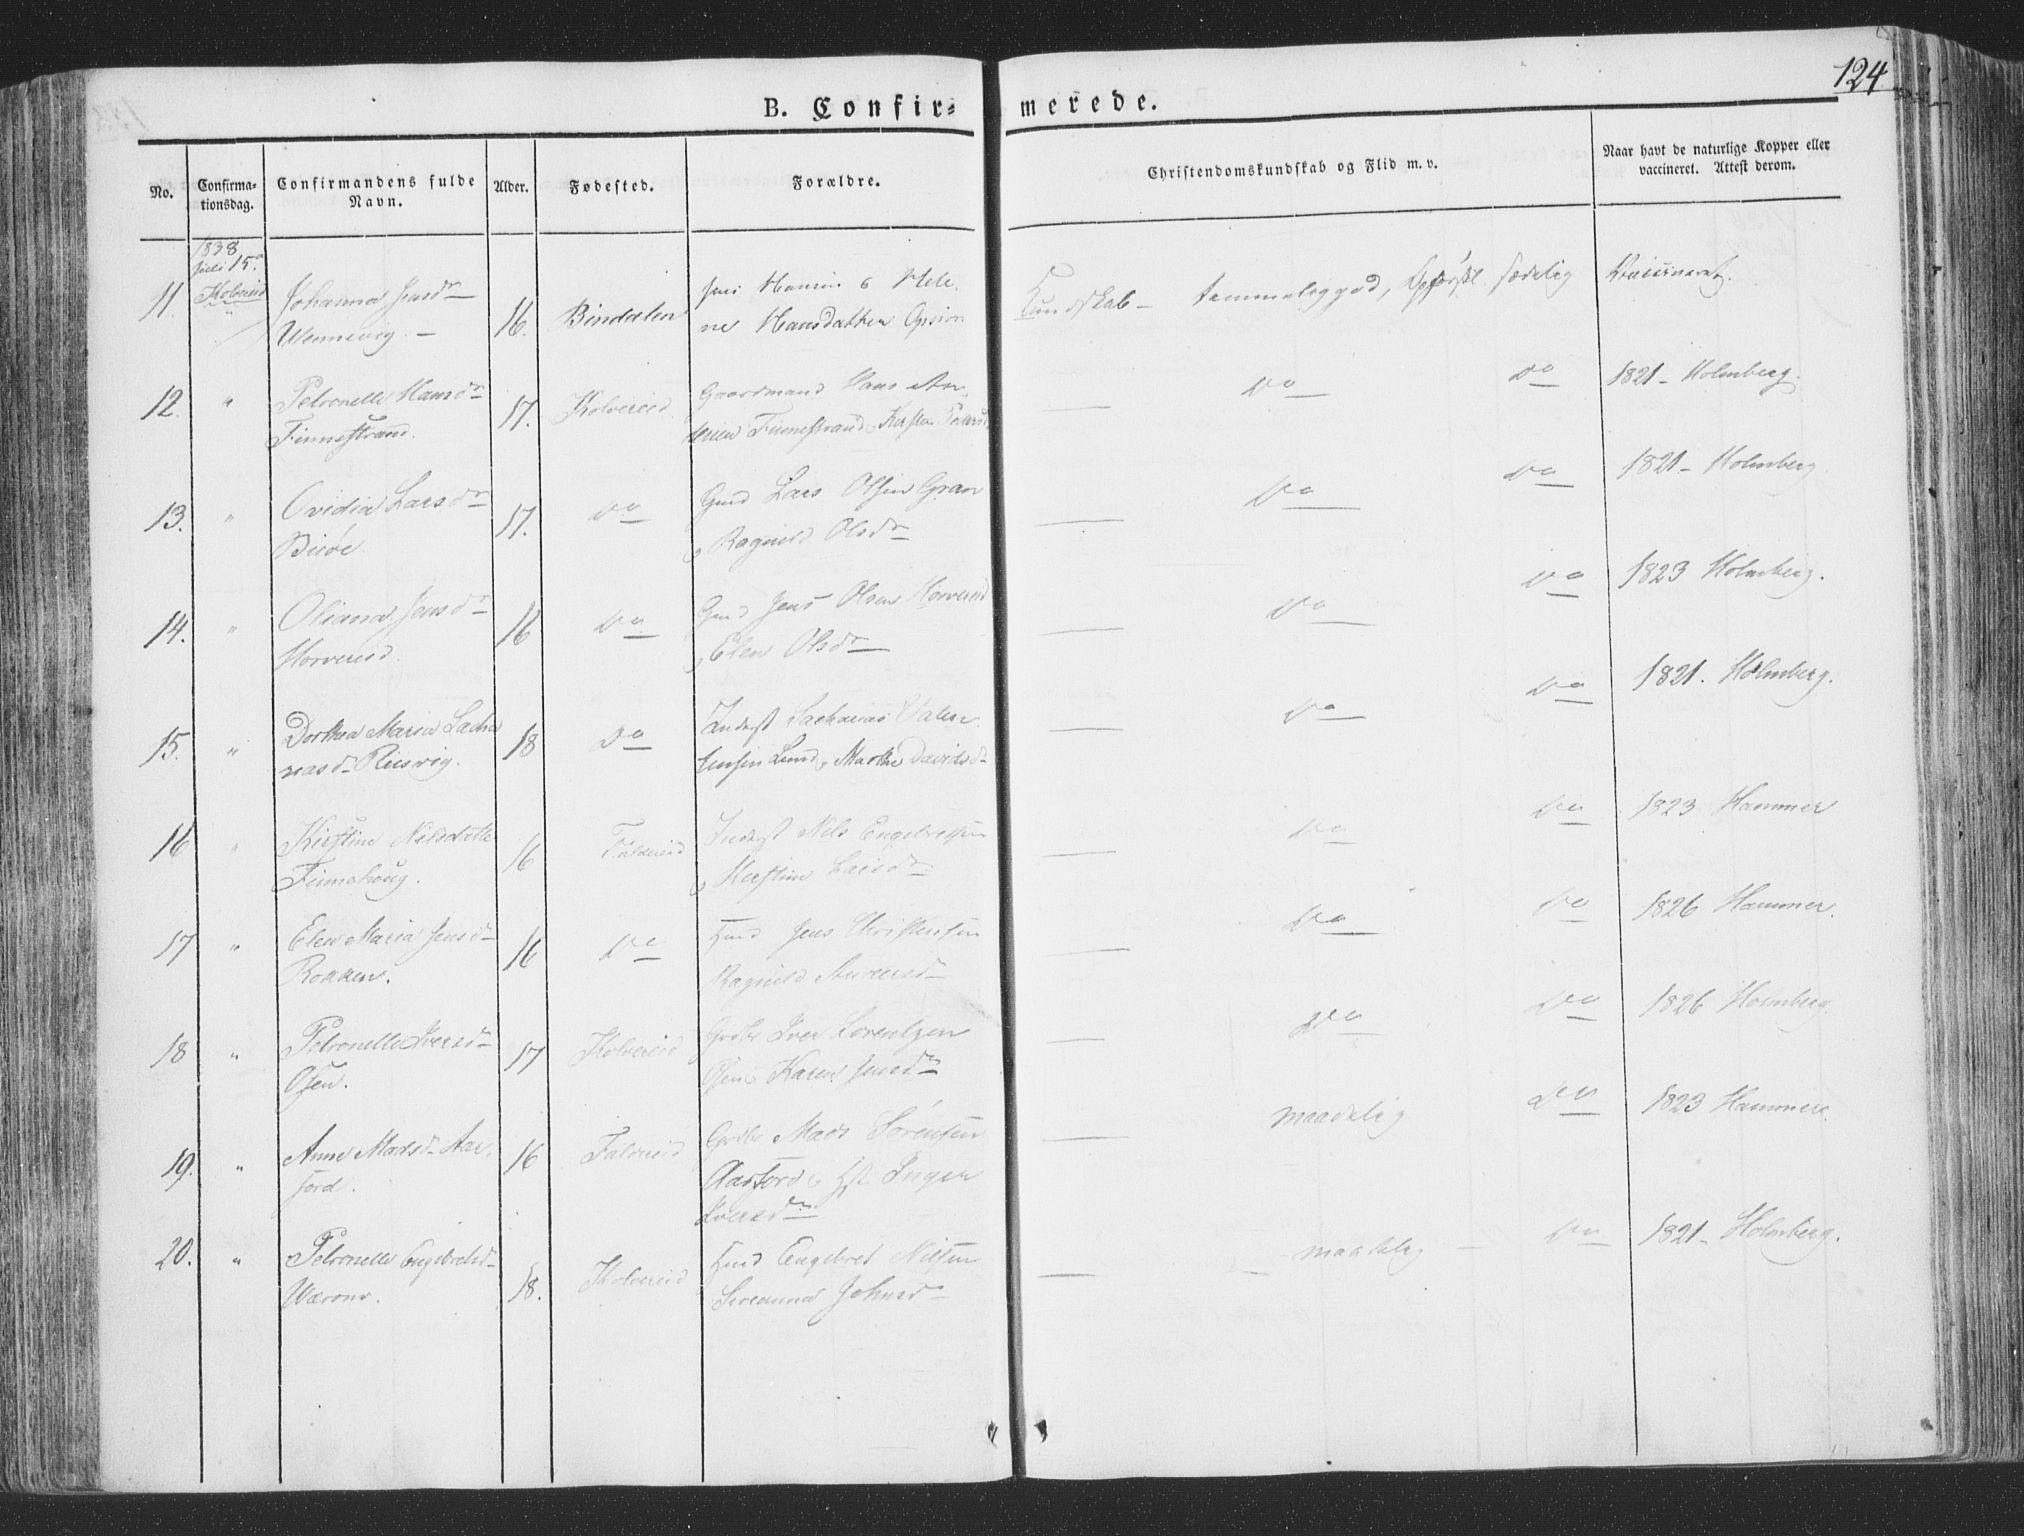 124
B. Confir- merede.
No.
Confirma-
tionsdag.
Confirmandens fulde
Navn.
Alder.
Fødested.
Forældre.
Christendomskundskab og Flid m. v.
Naar havt de naturlige Kopper eller
vaccineret. Attest derom.
1838
Juli 15.
11. Kolvereid Johanna Jensdr
16. Bindalen Jens Hansen & Hele-
ne Hansdatter
Kundskab - temmelig god, sædelig
12. " Petronelle Hansdr
Finnestrand.
17. Kolvereid Gaardmand Hans An-
Finnestrand Kirsten
Do Do 1821 - Holmberg.
13. " Ovidia Larsdr
17. Do Gmd Lars Olsen Gran
Ragnild Olsdr
Do Do 1821 - Holmberg
14. " Oliana Jensdr
Horvereid.
16 Do Gmd Jens Olsen Horvereid
Elen Olsdr
Do Do 1823 Holmberg.
15. " Dorthea Maria Zacha
riasdr Riisvig.
18 Do Inderst Zacharias Valen-
Lund, Marthe Davidsd
Do Do 1821. Holmberg.
16 " Kirstine Nilsdatter
Finnehoug.
16 Foldereid Inderst Nils Engebretsen
Kirstine Larsdr
Do Do 1823 Hammer
17 " Elen Maria Jensdr
16 Do Huusmd Jens Christensen
Ragnild
Do Do 1826 Hammer.
18 " Petronelle Iversdr
Osen.
17 Kolvereid Iver Lorentzen
Osen Karen Jensdr
Do Do 1826 Holmberg
19. " Anne Madsdr Aar-
ford.
16 Foldereid Mads Sørensen
Aarford & Hst. Inger
Iversdr
maadelig Do 1823 Hammer.
20. " Petronelle Engebretsd
18. Kolvereid Engebret Nilsen
Johnsdr
maadelig - Do 1821 - Holmberg.